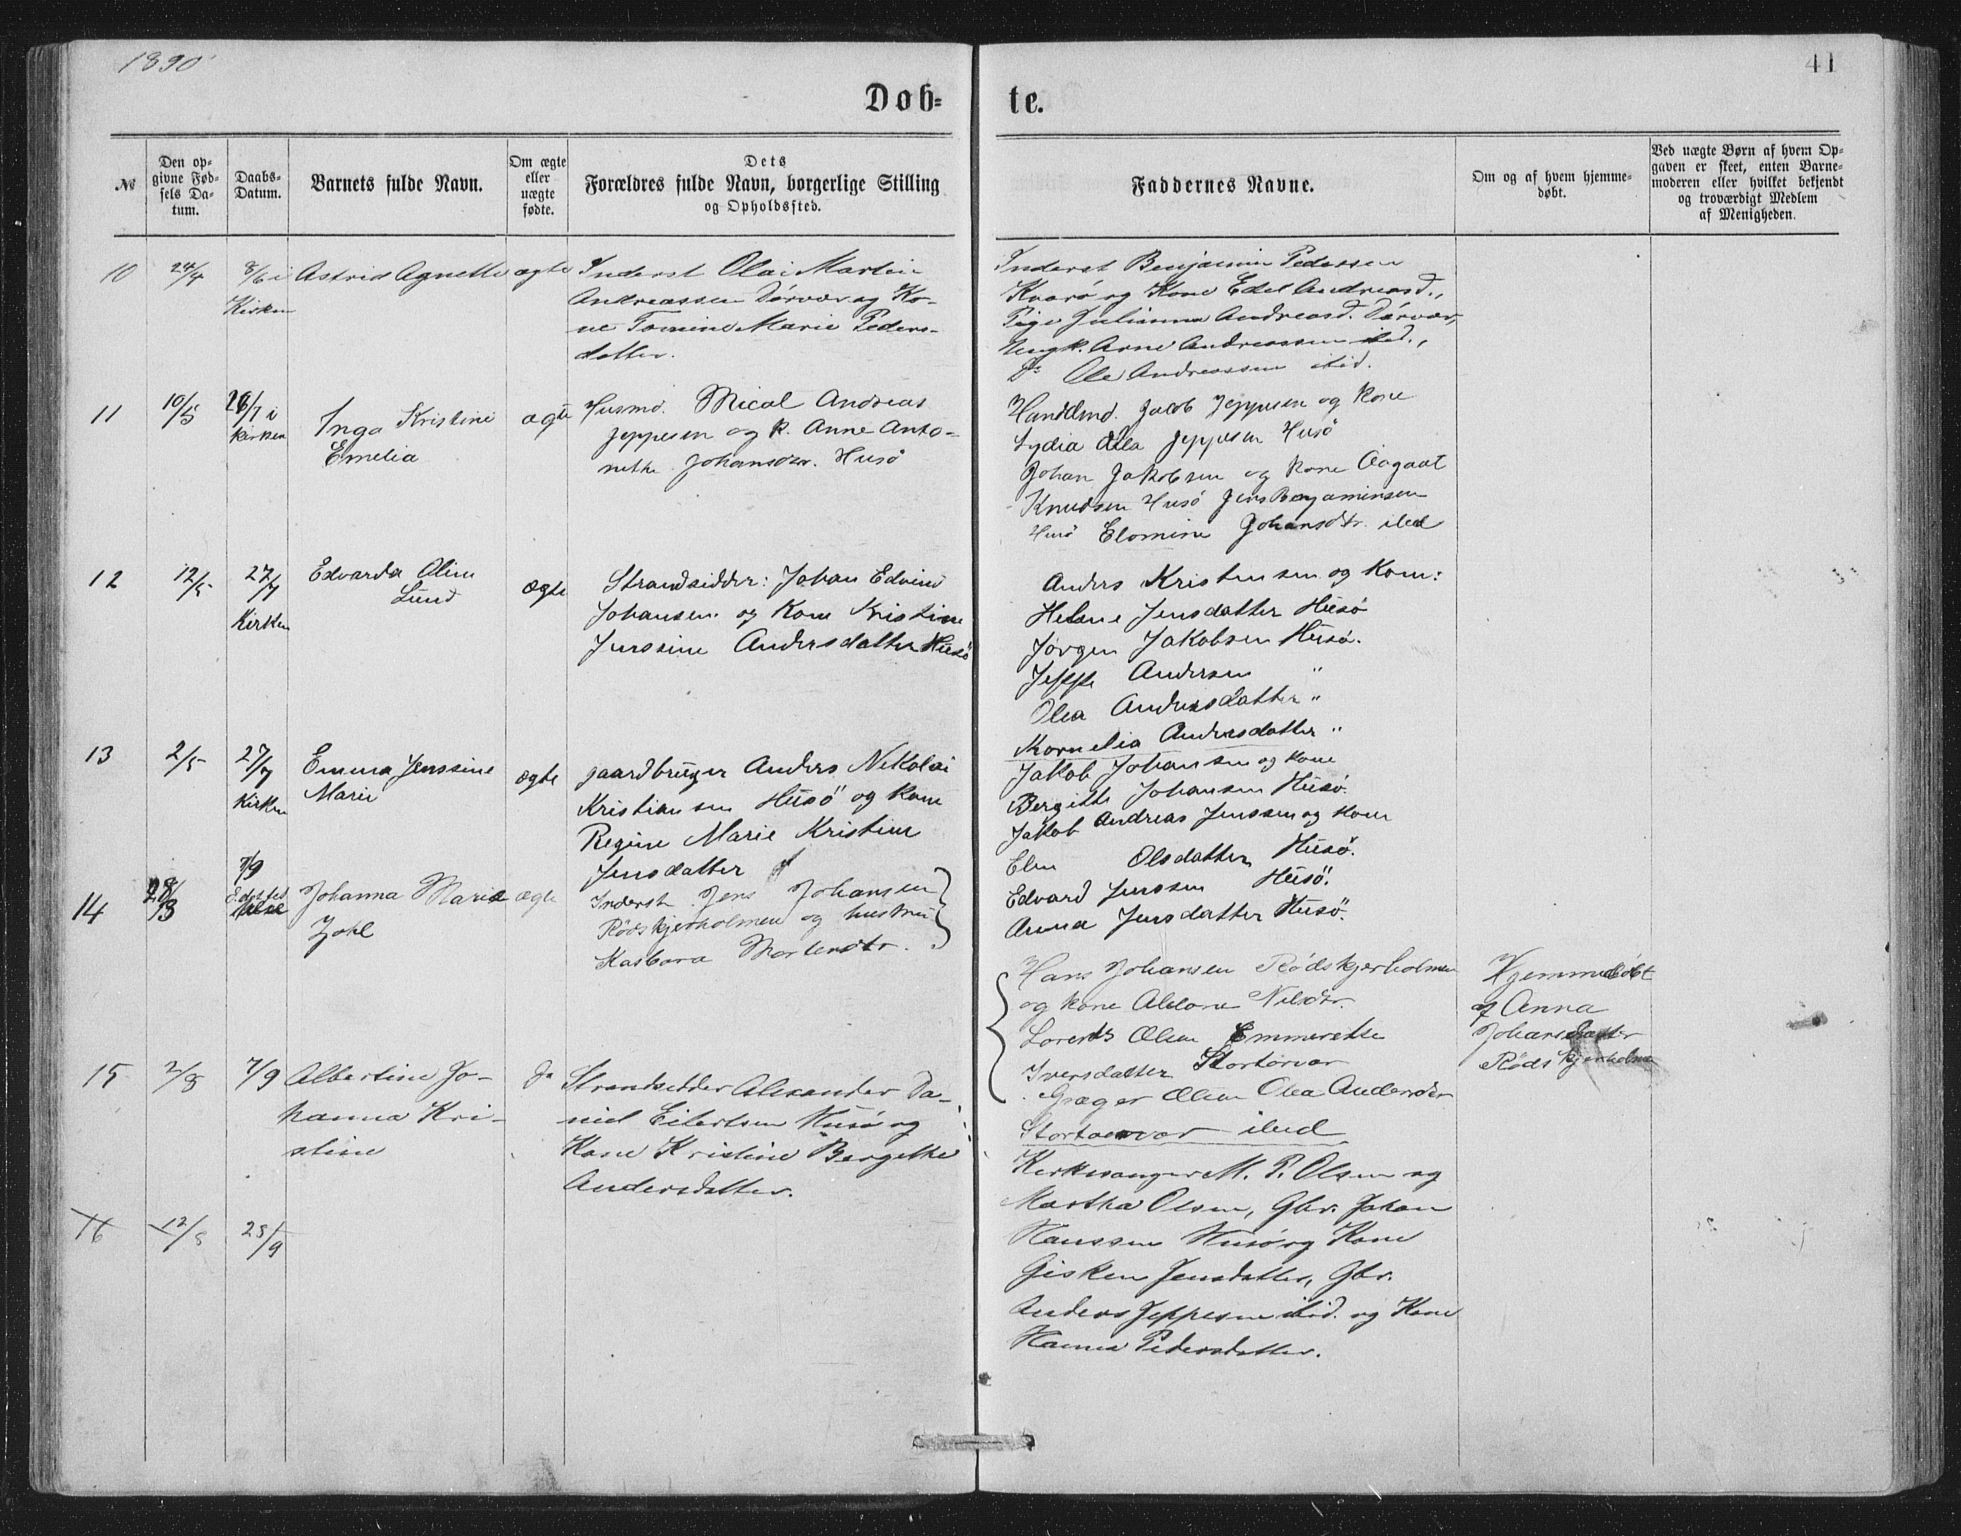 1890
41
Døb-
te.
№
Den op-
givne Fød-
sels Da-
tum.
Daabs-
Datum.
Barnets fulde Navn.
Om ægte
eller
uægte
fødte.
Dets
Forældres fulde Navn, borgerlige Stilling
og Opholdssted.
Faddernes Navne.
Om og af hvem hjemme-
døbt.
Ved uægte Børn af hvem Op-
gaven er skeet, enten Barne-
moderen eller hvilket bekjendt
og troværdigt Medlem
af Menigheden.
10
24/4
8/6 i
Kirken
Astrid Agnette
ægte
Inderst Olai Martin
Andreassen Dørvær og Ko-
ne Tomine Marie Peders-
datter.
Inderst Benjamin Pedersen
Kvarø og Kone Edel Andreasd.,
Pige Julianna Andreasd. Dørvær,
Ungk. Arne Andreassen ibid.,
Do Ole Andreassen ibid.
11
10/5
26/7 i
kirken
Inga Kristine
Emelia
ægte
Husmd. Mical Andreas
Jeppesen og k. Anne Anto-
nette Johansdtr. Husø
Handlmd. Jacob Jeppesen og kone
Lydia Jeppesen Husø
Johan Jakobsen og kone Aagaat
Knudsen Husø Jens Benjaminsen
Husø Elomine Johansdtr. ibd
12
12/5
27/7
Kirken
Edvarda Oline
Lund
ægte
Strandsidder: Johan Edvind
Johansen og Kone Kristine
Jenssine Andersdatter Husø
Anders Kristensen og Kone:
Helene Jensdatter Husø
Jørgen Jakobsen Husø.
Jeppe Andersen "
Olea Andersdatter "
Kornelia Andersdatter "
13
2/5
27/7
Kirken
Emma Jenssine
Marie
ægte
gaardbruger Anders Nikolai
Kristiansen Husø og kone
Regine Marie Kristine
Jensdatter
Jakob Johansen og kone
Bergitte Johansen Husø.
Jakob Andreas Jenssen og kone
Elen Olsdatter Husø.
Edvard Jenssen Husø.
Anna Jensdatter Husø.
14
28/3
7/9
Johanna Marie
Zahl
ægte
Inderst Jens Johansen
Rødskjerholmen og hustru
Kasbara Mortensdtr.
Hans Johansen Rødskjerholmen
og kone Aldona Nilsdtr.
Lorents Olsen Emmerette
Iversdatter Stortorvar
Græger Olsen Olea Andersdtr
Stortorvar ibid
Hjemmedøbt
af Anna
Johansdatter
Rødskjerholmen
15
2/8
7/9
Albertine Jo-
hanna Kri-
stine
Do
Strandsidder Alexander Da-
niel Eilertsen Husø og
Kone Kristine Bergethe
Andersdatter.
Kirkesanger M. P. Olsen og
Martha Olsen, Gbr. Johan
Hanssen Husø og Kone
Gisken Jensdatter, Gbr.
Anders Jeppesen ibid. og Kone
Hanna Pedersdatter.
16
12/8
28/9